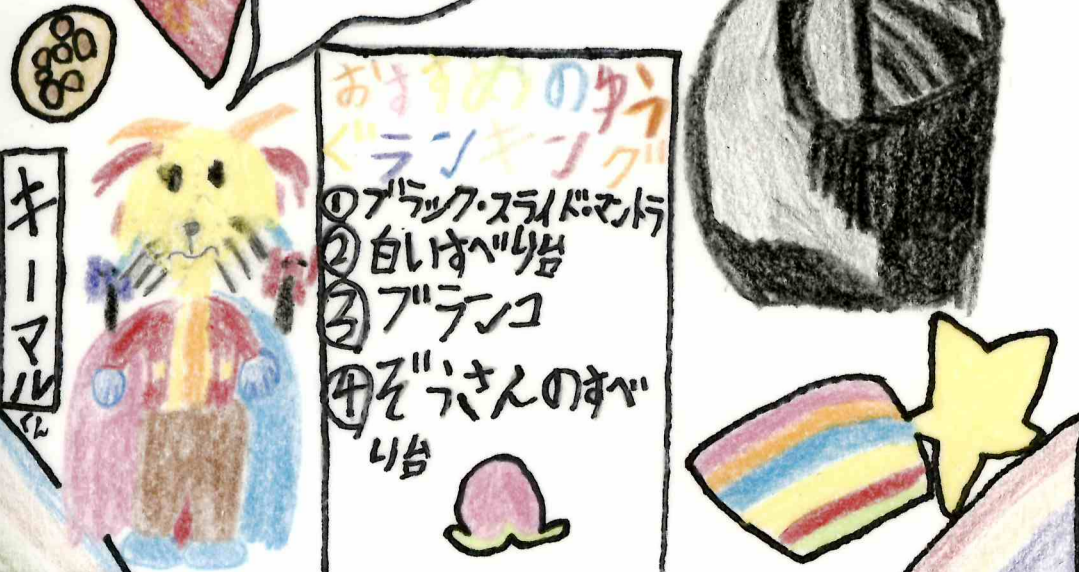 キーマル
くん
おすすめのゆう
ぐランキング
①ブラック・スライド・マントラ
②白いすべり台
③ブランコ
④ぞうさんのすべ
り台